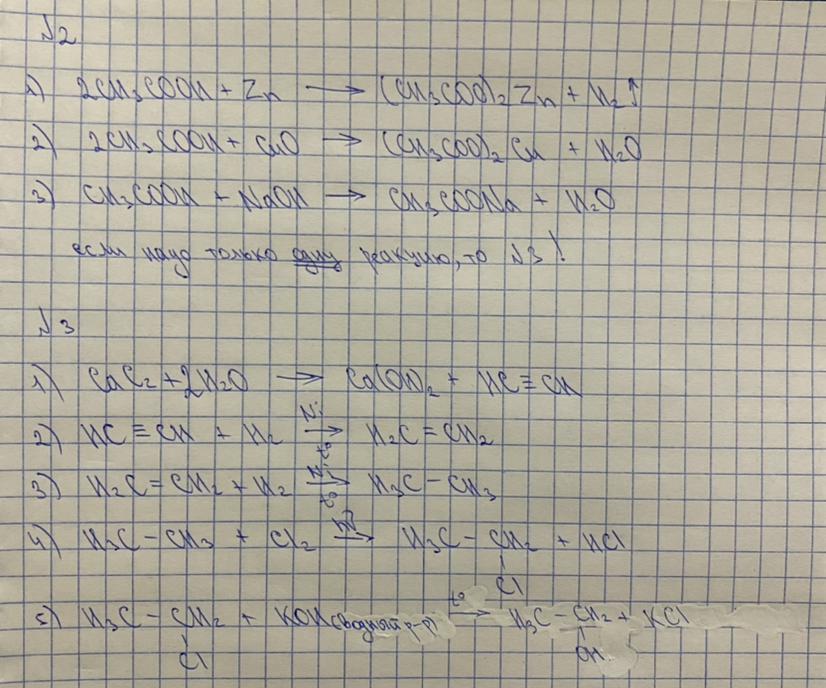 №2
1) 2CH₃COOH + Zn ⟶ (CH₃COO)₂Zn + H₂↑
2) 2CH₃COOH + CuO → (CH₃COO)₂Cu + H₂O
3) CH₃COOH + NaOH → CH₃COONa + H₂O
если надо только одну реакцию, то №3!
№3
1) CaC₂ + 2H₂O → Ca(OH)₂ + HC≡CH
Ni
2) HC≡CH + H₂ → H₂C=CH₂
t°
Ni
3) H₂C=CH₂ + H₂ → H₃C–CH₃
t°
hν
4) H₃C–CH₃ + Cl₂ → H₃C–CH₂ + HCl
Cl
t°
5) H₃C–CH₂ + KOH (водный р-р) → H₃C–CH₂ + KCl
Cl OH